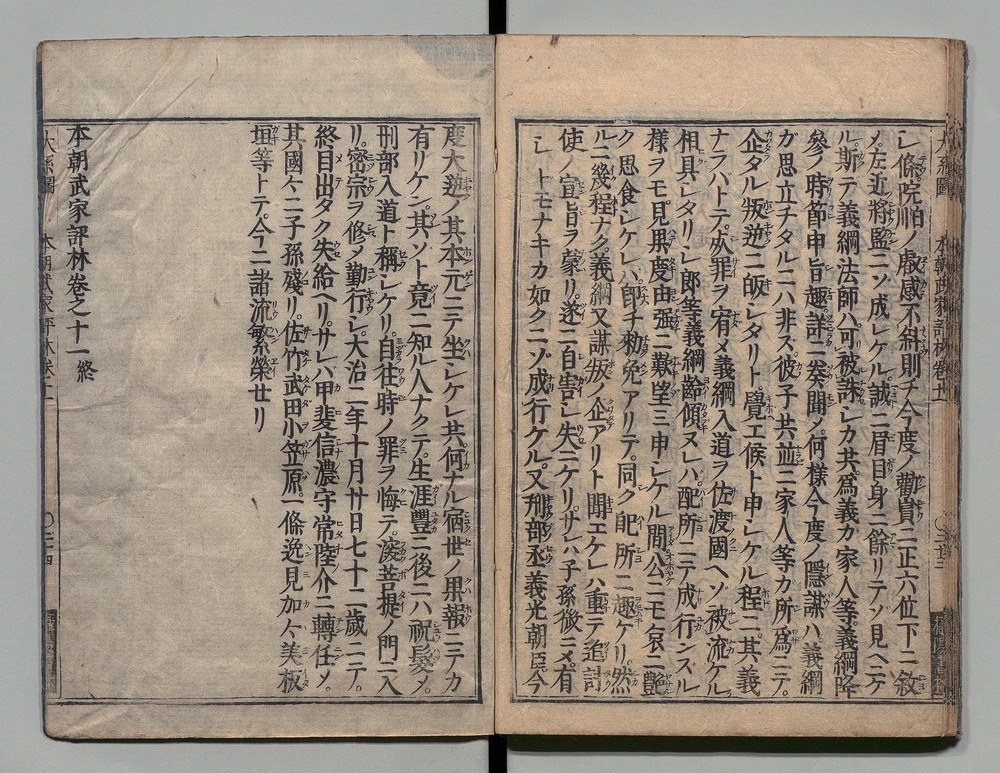 シ條院怕ノ叡感不斜則チ今度ノ勸賞ニ正六位下ニ敘
ノ左近將監ニソ成レケル誠ニ眉目身ニ餘リテソ見ヘニケ
ル斯テ義綱法師ハ可被誅シカ共爲義カ家人等義綱降
參ノ時節申旨趣詳ニ奏聞ノ何樣今度ノ隱謀ハ義綱
ガ思立チタルニハ非ス彼子共並ニ家人等カ所爲ニテ
企タル叛逆ニ皈シタリト覺エ候ト申シケル程ニ其義
ナラハトテ死罪ヲ宥メ義綱入道ヲ佐渡國ヘソ被流ケル
相具シタリシ郎等義綱齡傾ヌレハ配所ニテ成行ンズル
樣ヲモ見果度由强ニ歎望ミ申シケル間公ニモ哀ニ艷
ク思食シケレハ卽チ勑免アリテ同ク配所ニ趣ケリ然
ルニ幾程ナク義綱又謀叛ノ企アリト聞エケレハ重テ追討
使ノ宣旨ヲ蒙リ遂ニ自害シ失ニケリサレハ子孫微ニメ有
シトモナキカ如クニゾ成行ケル又刑部丞義光朝臣今
度大逆ノ其本元ニテ坐シケレ共何ナル宿世ノ果報ニテカ
有リケン其ソト竟ニ知ル人ナクテ生涯豐ニ後ニハ祝髮メ
刑部入道ト稱シケリ自往時ノ罪ヲ悔テ深菩提ノ門ニ入
リ密宗ヲ修メ勤行シ大治二年十月廿日七十二歲ニテ
終目出タク失給ヘリサレハ甲斐信濃守常陸介ニ轉任メ
其國々ニ子孫殘リ佐竹武田小笠原一條逸見加々美板
垣等トテ今ニ諸流繁榮セリ
本朝武家評林卷之十一終
大系圖 本朝武家評林卷十一 〇三十四